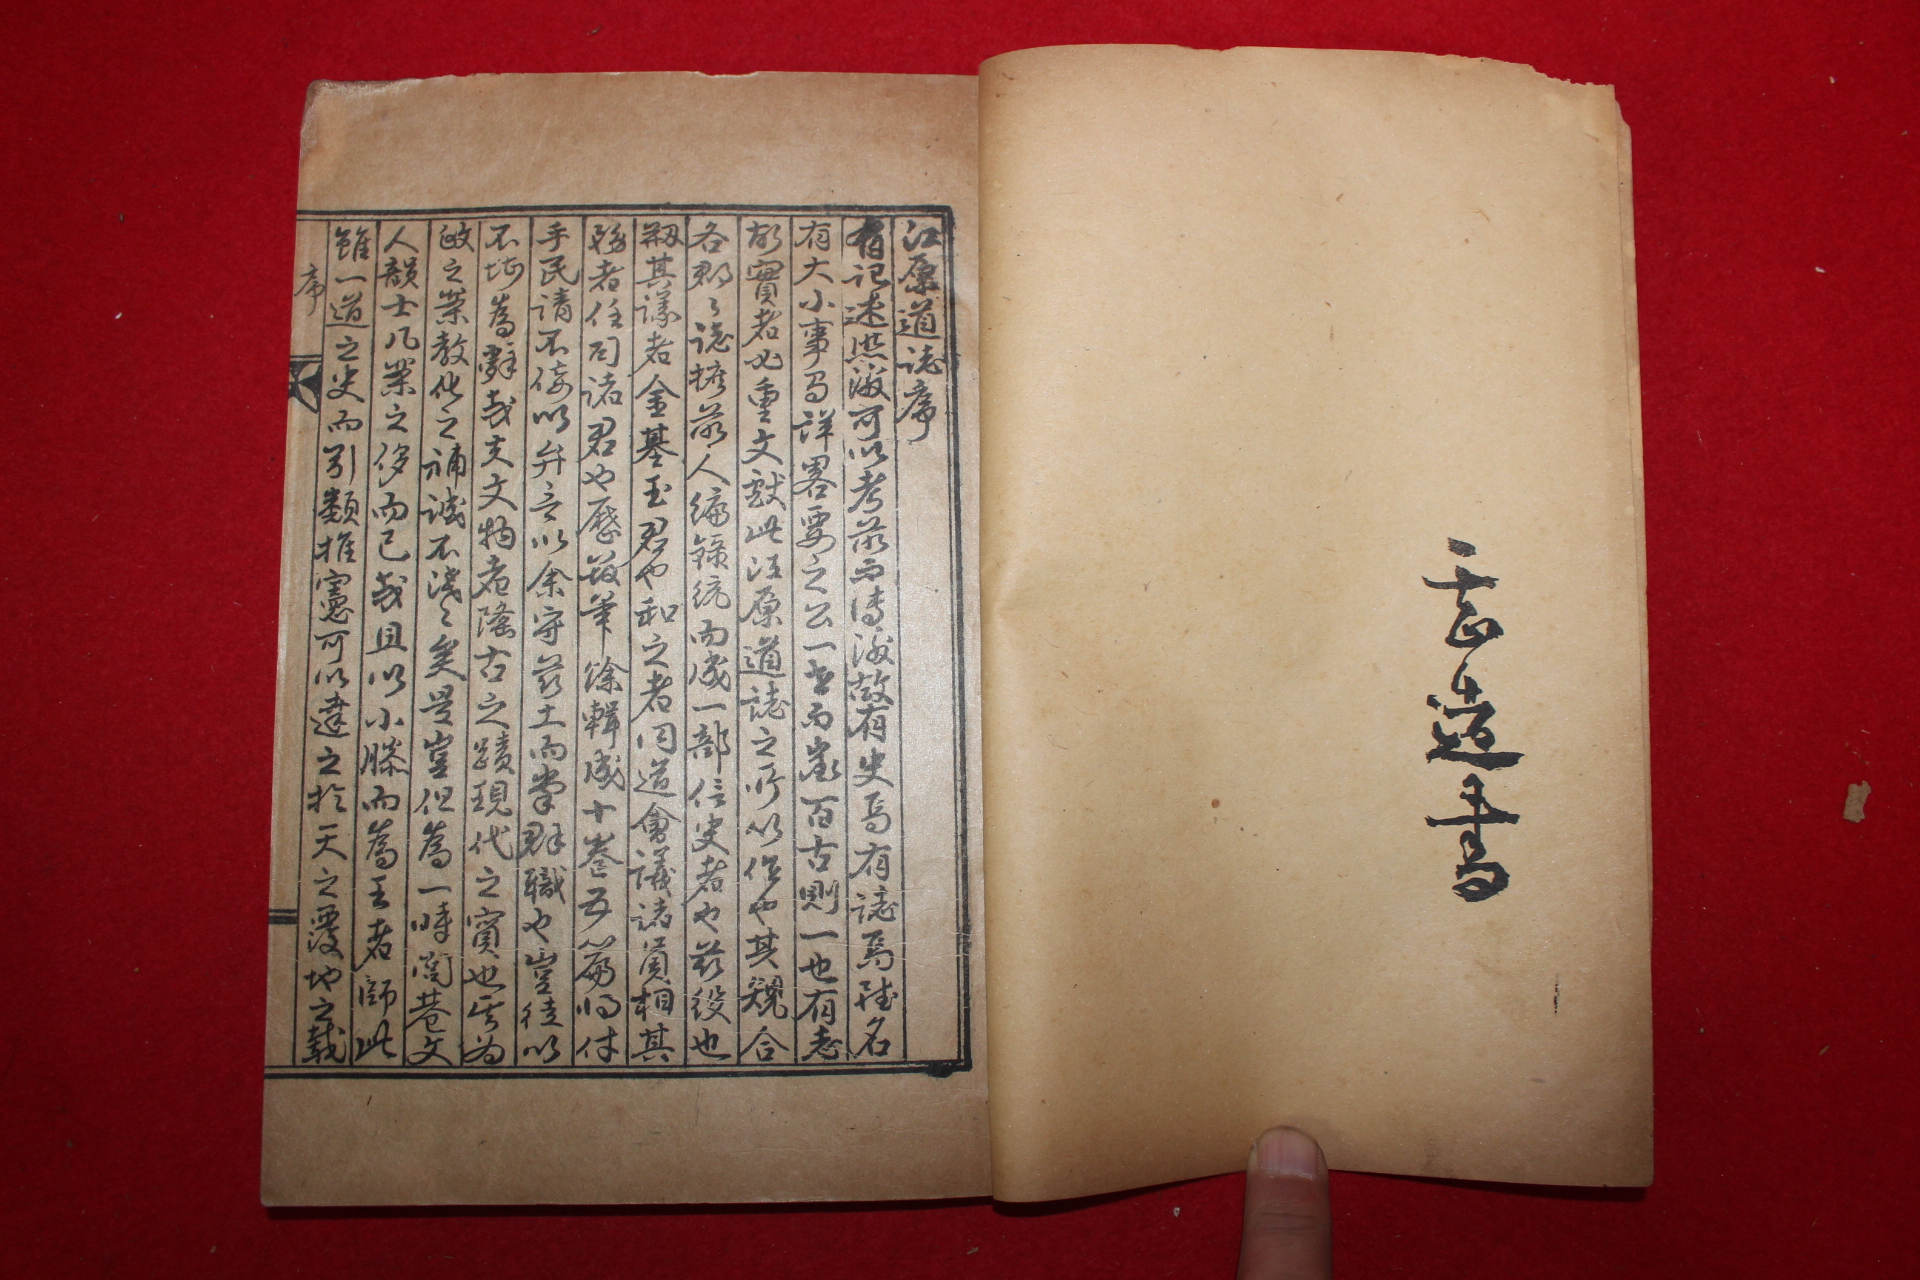 志造書
江原道誌序
有記述然後可以考前而傳後故有史焉有誌焉雖名
有大小事有詳畧要之公一世而嵗百古則一也有志
故實者必重文獻此江原道誌之所以作也其規合
各郡之誌據前人編錄統而成一部信史者也玆役也
刱其議者金基玉君也和之者同道會議諸員相其
務者任司諸君也歷數年餘輯成十卷五篇將付
手民請不佞以弁言以余守玆土而掌群職也豈徒以
不 爲辭哉夫文物者隆古之蹟現代之實也其爲
政之 敎化之補誠不淺淺矣是豈但爲一時閭巷文
人韻士几案之侈而已哉且以小滕而爲王者師此
雖一道之史而引類推 可以達之於天之覆地之載
序